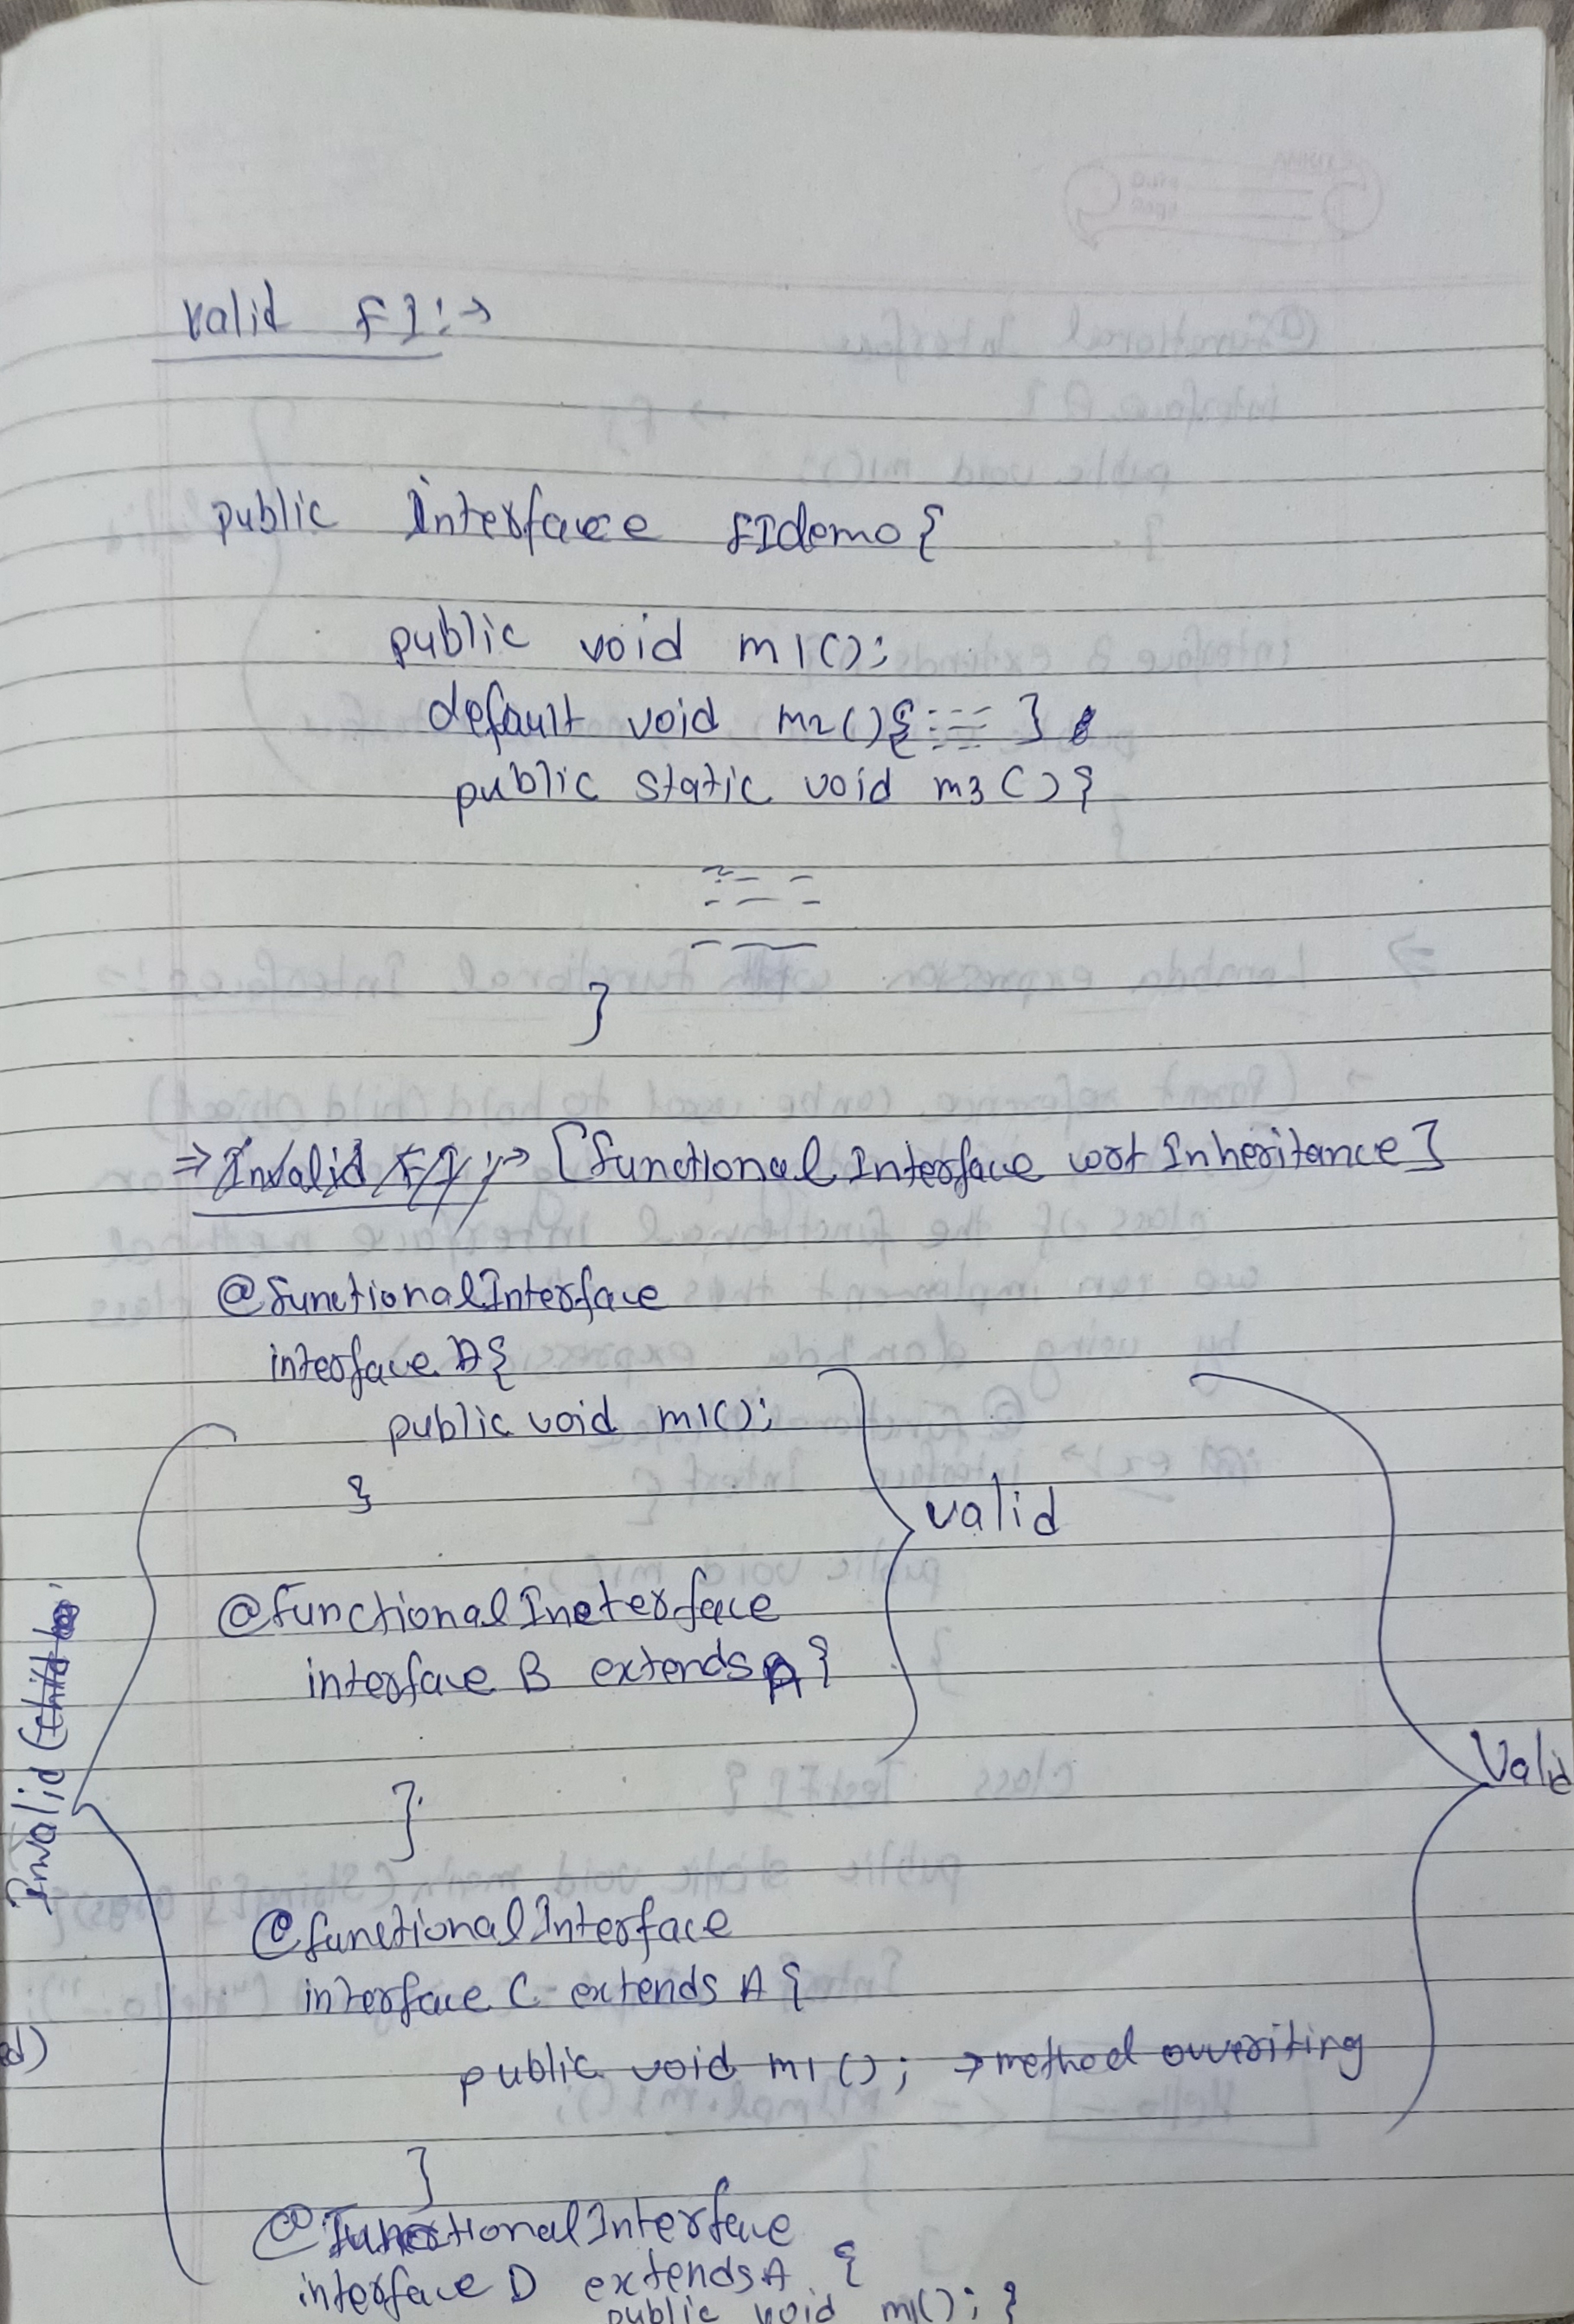 valid FI:→
public Interface FIdemo{
public void m1();
default void m2(){:---}
public static void m3(){
}
⇒ Invalid FI:→ [functional Interface wrt Inheritance]
@functionalInterface
interface A{
public void m1();
}
valid
@functionalIneterface
interface B extends A{
}
Valid
Invalid (child
@functionalInterface
interface C extends A{
public void m1(); → method ovveriting
}
@FunctionalInterface
interface D extends A {
public void m1(); }